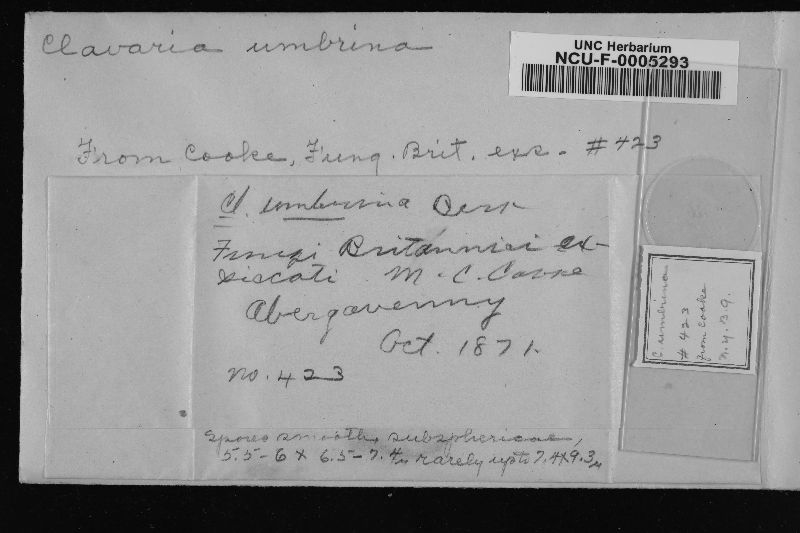 Clavaria umbrina
UNC Herbarium
NCU-F-0005293
From Cooke, Fung. Brit. exs. #423
Cl. umbrina Berk
Fungi Britannici ex-
siccati M. C. Cooke
Abergavenny
Oct. 1871.
No. 423
Spores smooth, subsphericae,
5.5-6 x 6.5-7.4µ rarely up to 7.4x9.3µ
C. umbrina
#423
from Cooke
N.Y.B.G.